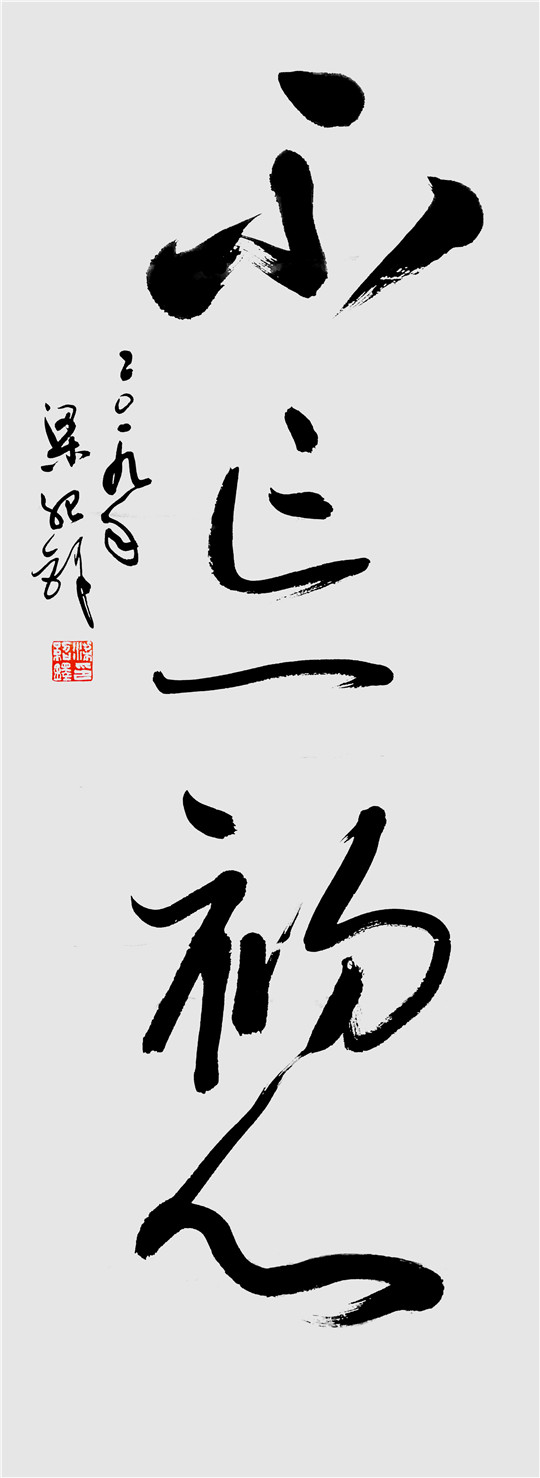 不忘初心
二〇一九年
梁